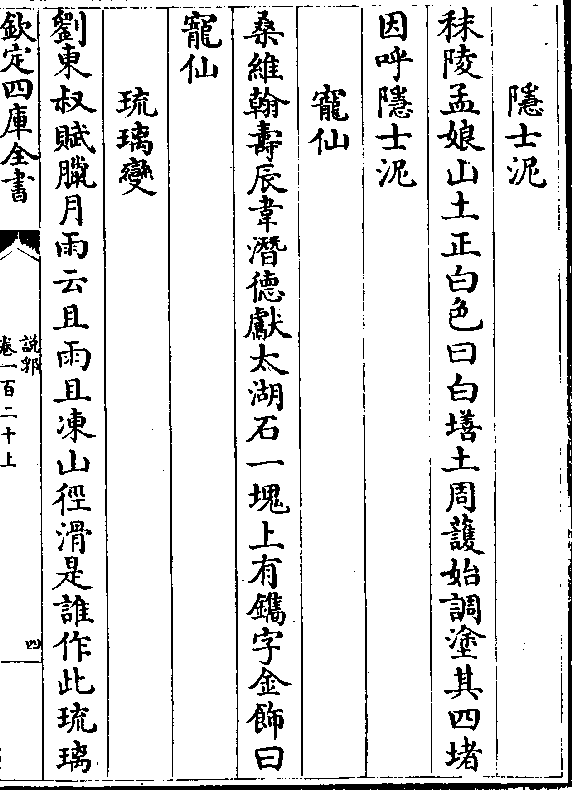 隱士泥
秣陵孟娘山土正白色曰白墡土周䕶始調塗其四堵
因呼隱士泥
寵仙
桑維翰壽辰韋潛德獻太湖石一塊上有鐫字金飾曰
寵仙
琉璃變
劉東叔賦臘月雨云且雨且凍山徑滑是誰作此琉璃
欽定四庫全書
說郛
卷一百二十上
四